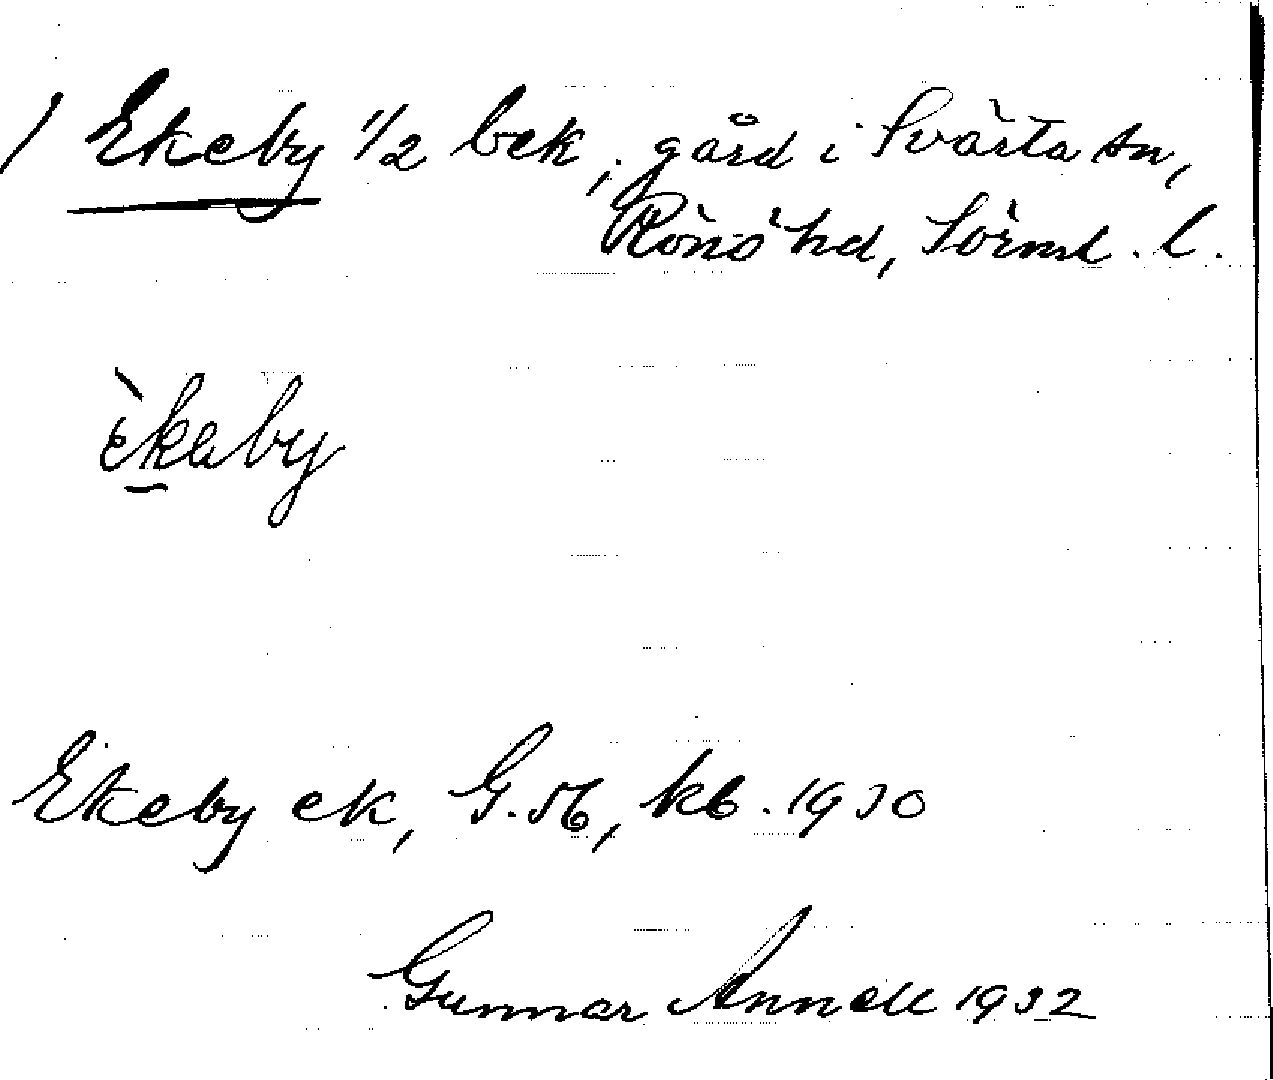 / Ekeby 1/2 bek, gård i Svärta sn,
Rönö hd, Sörml. l.
èkaby
Ekeby ek, G. 56, kb. 1930
Gunnar Annell 1932